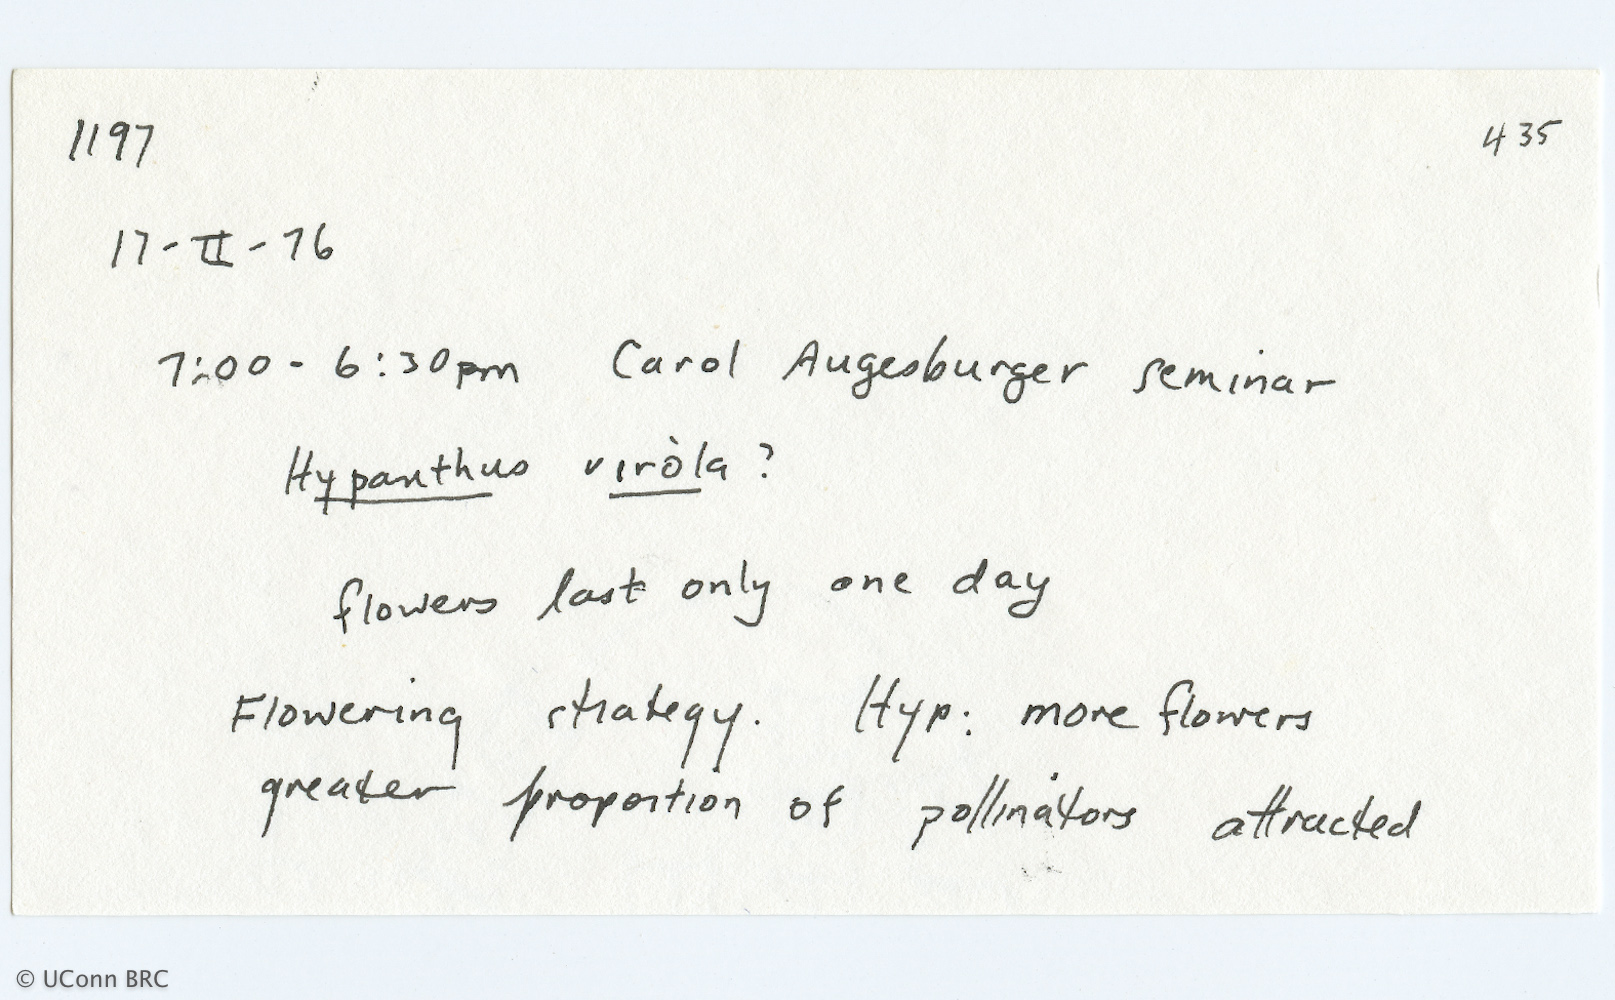 1197
435
17-II-76
7:00 - 6:30pm Carol Augesburger seminar
Hypanthus viròla?
flowers last only one day
Flowering strategy. Hyp: more flowers
greater proportion of pollinators attracted
© UConn BRC